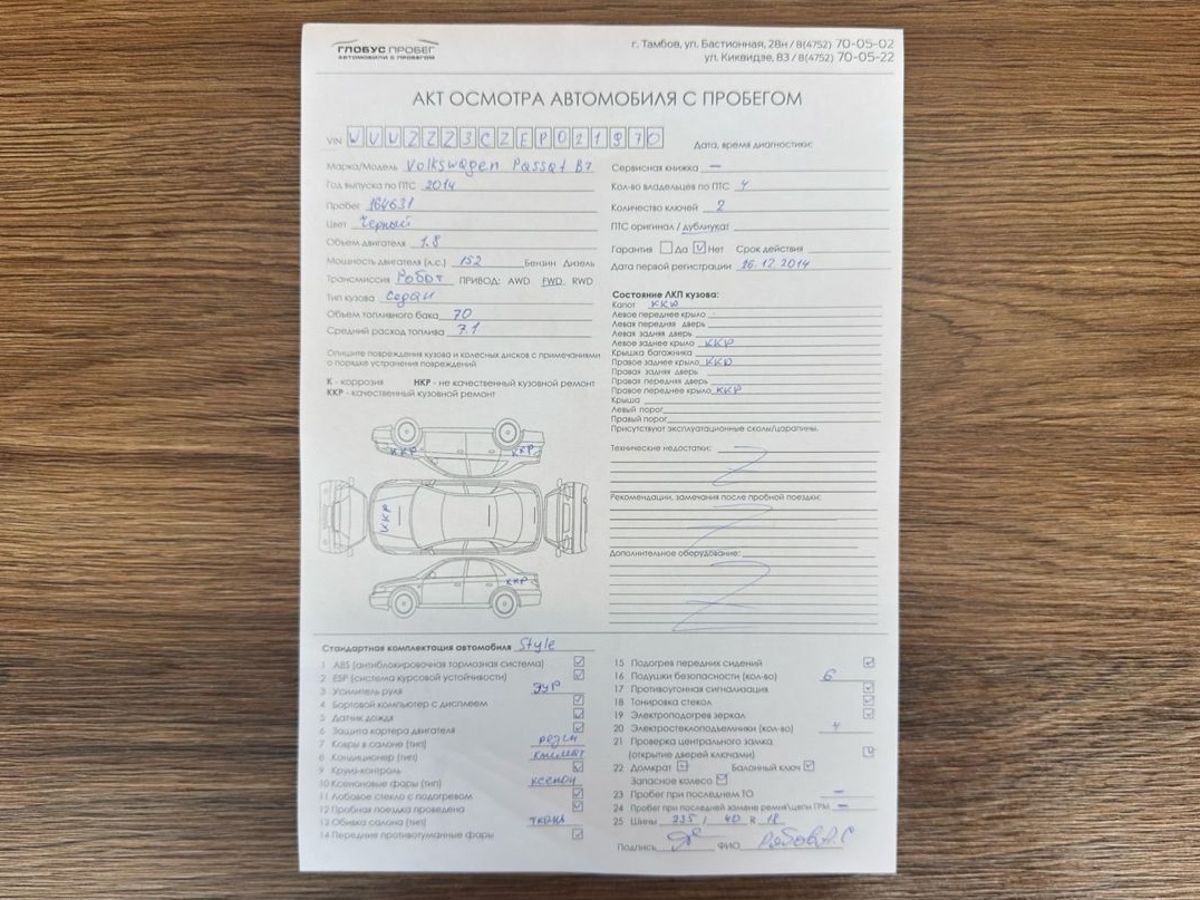 ГЛОБУС ПРОБЕГ
АВТОМОБИЛИ С ПРОБЕГОМ
г. Тамбов, ул. Бастионная, 28н / 8(4752) 70-05-02
ул. Киквидзе, 83 / 8(4752) 70-05-22
АКТ ОСМОТРА АВТОМОБИЛЯ С ПРОБЕГОМ
VIN WVWZZZ3CZEP021970
Дата, время диагностики:
Марка/Модель Volkswagen Passat B7
Год выпуска по ПТС 2014
Пробег 164631
Цвет Черный
Объем двигателя 1.8
Мощность двигателя (л.с.) 152 Бензин Дизель
Трансмиссия Робот ПРИВОД: AWD FWD RWD
Тип кузова Седан
Объем топливного бака 70
Средний расход топлива 7.1
Сервисная книжка —
Кол-во владельцев по ПТС 4
Количество ключей 2
ПТС оригинал / дубликат
Гарантия Да Нет Срок действия
Дата первой регистрации 26.12.2014
Опишите повреждения кузова и колесных дисков с примечаниями
о порядке устранения повреждений
К - коррозия НКР - не качественный кузовной ремонт
ККР - качественный кузовной ремонт
ККР ККР
ККР
ККР
Состояние ЛКП кузова:
Капот ККР
Левое переднее крыло
Левая передняя дверь
Левая задняя дверь
Левое заднее крыло ККР
Крышка багажника
Правое заднее крыло ККР
Правая задняя дверь
Правая передняя дверь
Правое переднее крыло ККР
Крыша
Левый порог
Правый порог
Присутствуют эксплуатационные сколы/царапины.
Технические недостатки:
Рекомендации, замечания после пробной поездки:
Дополнительное оборудование:
Стандартная комплектация автомобиля Style
1 ABS (антиблокировочная тормозная система)
2 ESP (система курсовой устойчивости)
3 Усилитель руля ЭУР
4 Бортовой компьютер с дисплеем
5 Датчик дождя
6 Защита картера двигателя
7 Ковры в салоне (тип) резин
8 Кондиционер (тип) климат
9 Круиз-контроль
10 Ксеноновые фары (тип) ксенон
11 Лобовое стекло с подогревом
12 Пробная поездка проведена
13 Обивка салона (тип) ткань
14 Передние противотуманные фары
15 Подогрев передних сидений
16 Подушки безопасности (кол-во) 6
17 Противоугонная сигнализация
18 Тонировка стекол
19 Электроподогрев зеркал
20 Электростеклоподъемники (кол-во) 4
21 Проверка центрального замка
(открытие дверей ключами)
22 Домкрат Балонный ключ
Запасное колесо
23 Пробег при последнем ТО —
24 Пробег при последней замене ремня/цепи ГРМ —
25 Шины 235 / 40 R 18
Подпись ФИО Рябов А.С